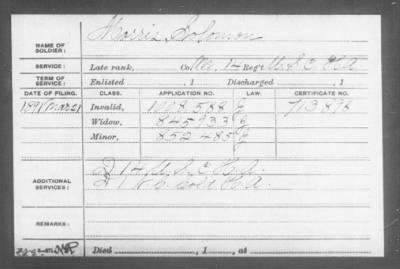 NAME OF SOLDIER: Morris Solomon
SERVICE: Late rank, Co. 14 Reg't U.S.C. H.A.
TERM OF SERVICE: Enlisted , 1 Discharged , 1
DATE OF FILING. CLASS. APPLICATION NO. LAW. CERTIFICATE NO.
1891 Mar 21 Invalid, 1008.588 J 713.892
Widow, 845933 J
Minor, 852485 J
ADDITIONAL SERVICES: 14 U.S.C. H.A.
N.C. Col'd H.A.
REMARKS:
Died , 1 , at